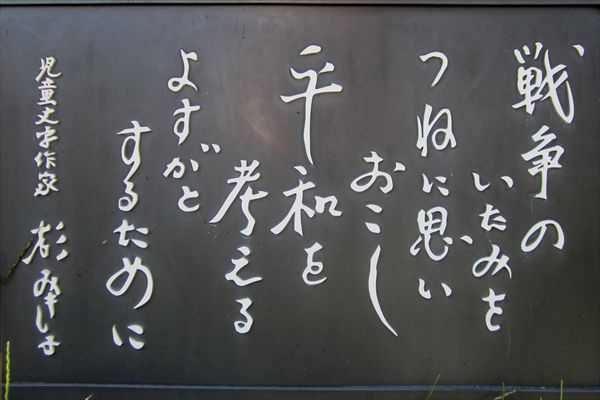 戦争の
いたみを
つねに思い
おこし
平和を
考える
よすがと
するために
児童文学作家 杉みき子